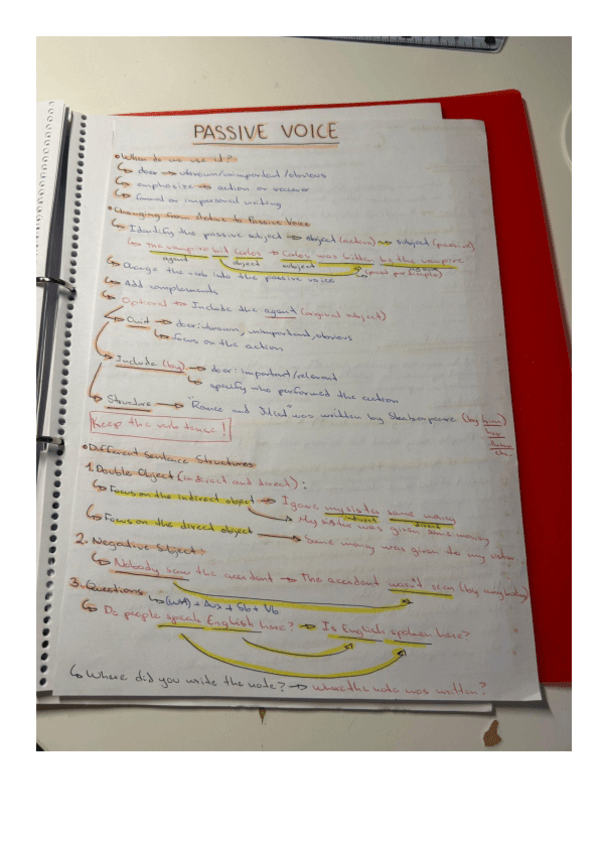 PASSIVE VOICE
• When do we use it?
↳ doer → unknown/unimportant/obvious
↳ emphasize → action or receiver
↳ formal or impersonal writing
• Changing from Active to Passive Voice
↳ Identify the passive subject → object (active) → subject (passive)
↳ the vampire bit Carlos → Carlos was bitten by the vampire
agent object subject (past participle)
↳ Change the verb into the passive voice
↳ Add complements
↳ Optional → Include the agent (original subject)
↳ Omit → doer: unknown, unimportant, obvious
↳ focus on the action
↳ Include (by) → doer: important/relevant
↳ specify who performed the action
↳ Structure → "Romeo and Juliet" was written by Shakespeare (by him)
her
them
etc.
Keep the verb tense!
• Different Sentence Structures
1. Double Object (indirect and direct):
↳ Focus on the indirect object → I gave my sister some money
indirect direct
→ My sister was given some money
↳ Focus on the direct object → Some money was given to my sister
2. Negative Subject:
↳ Nobody saw the accident → The accident wasn't seen (by anybody)
3. Questions
↳ (WH) + Aux + Sb + Vb
↳ Do people speak English here? → Is English spoken here?
↳ Where did you write the note? → Where the note was written?